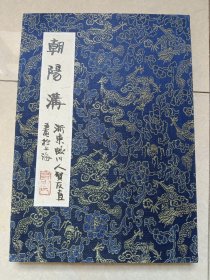 朝陽溝
浙東㑇川人賀友直
畫於上海